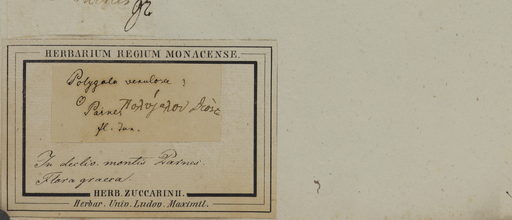 HERBARIUM REGIUM MONACENSE.
Polygala venulosa ;
Parnes Πολύγαλον Διοσκ
fl. Jun.
In decliv. montis Parnes.
Flora graeca.
HERB. ZUCCARINII.
Herbar. Univ. Ludov. Maximil.